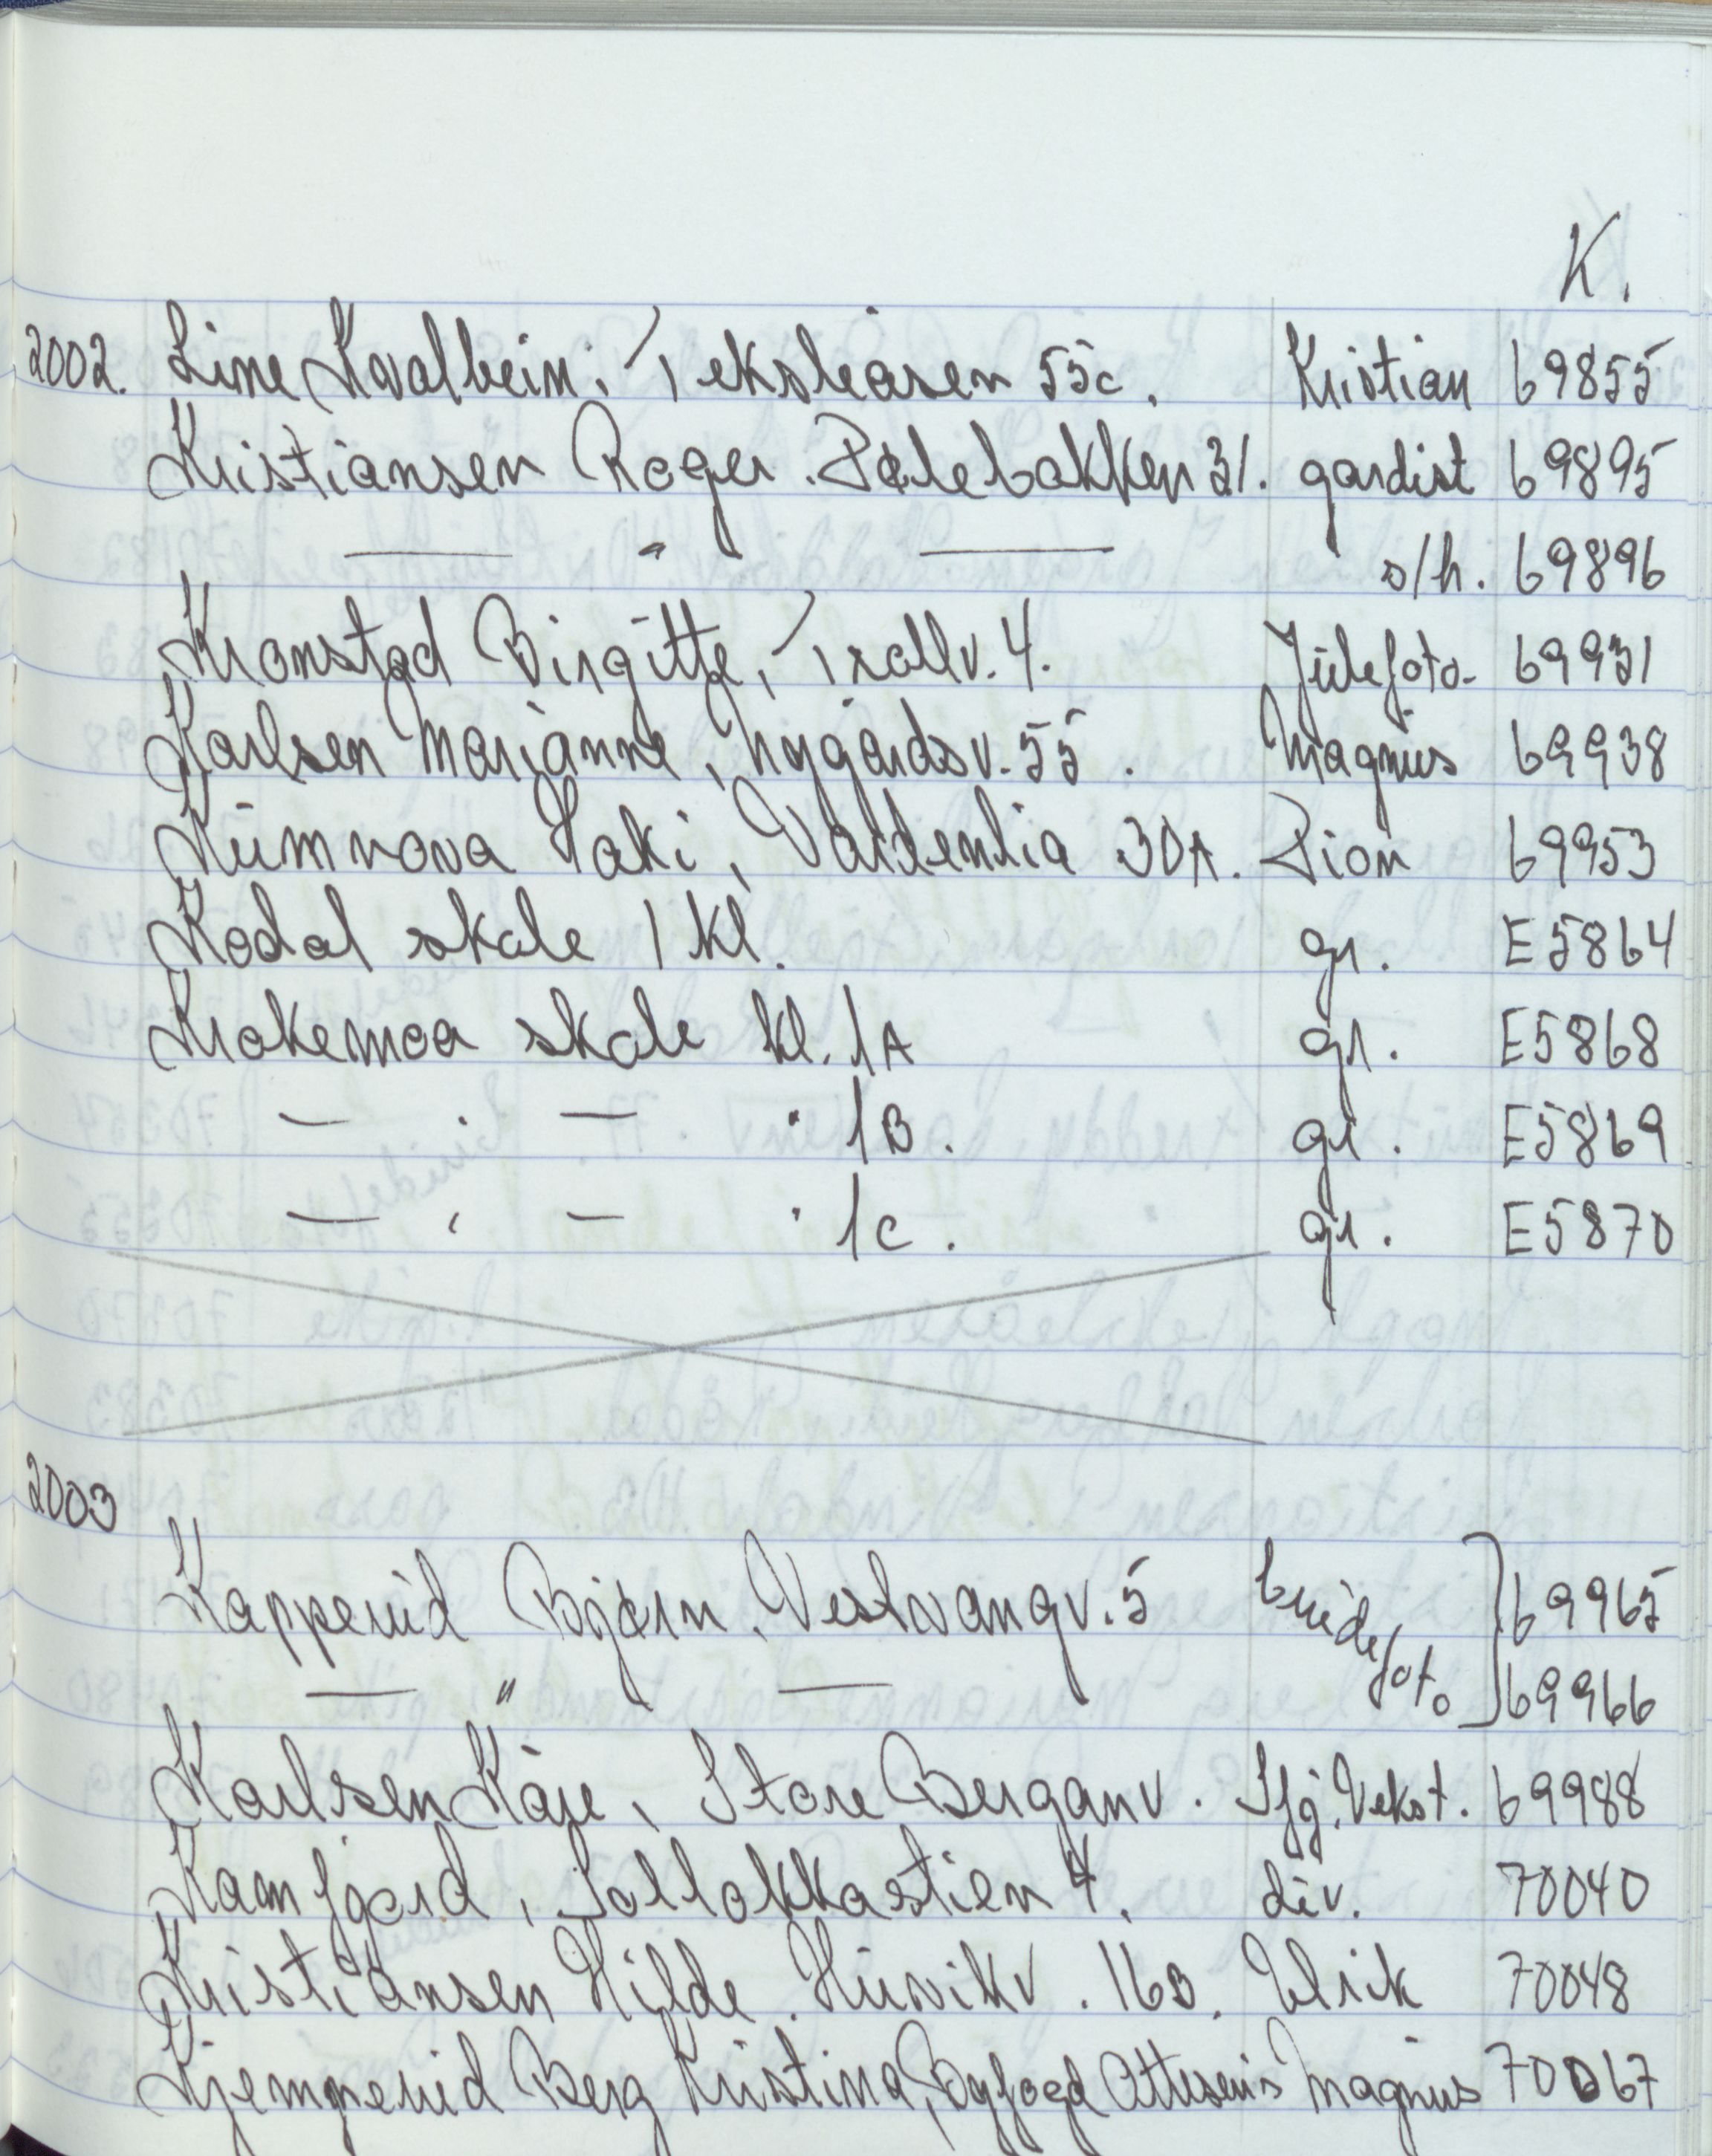 K.
2002. Line Kvalheim. Teksleåsen 55c. Kristian 69855
Kristiansen Roger. Pælebakken 31. gardist 69895
— " — s/h. 69896
Kronstad Birgitte, Trollv. 4. Julefoto. 69931
Karlsen Marianne, Nygårdsv. 55. Magnus 69938
Vardenlia 30A. Dion 69953
Kodal skole 1 kl. gr. E5864
Krokemoa skole kl. 1A gr. E5868
— " — " 1B. gr. E5869
— " — " 1C. gr. E5870
2003
Kapperud Bjørn, Vestvangv. 5 brudefoto 69965
— " — 69966
Karlsen Kåre, Store Berganv. Sfj. Vekst. 69988
Kamfjord, Sollokkastien 4. div. 70040
Kristiansen Hilde. Husvikv. 16B. Ulrik 70048
Kjempenud Berg Kristina, Byfogd Ottesens Magnus 70067